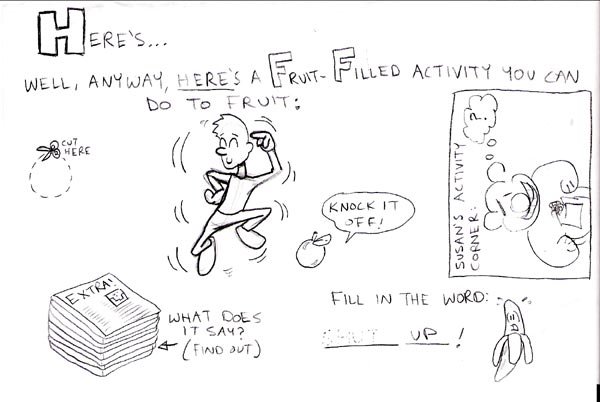 HERE'S...
WELL, ANYWAY, HERE'S A FRUIT-FILLED ACTIVITY YOU CAN
DO TO FRUIT:
CUT
HERE
KNOCK IT
OFF!
SUSAN'S ACTIVITY
CORNER:
?
EXTRA!
WHAT DOES
IT SAY?
(FIND OUT)
FILL IN THE WORD:
SHUT UP!